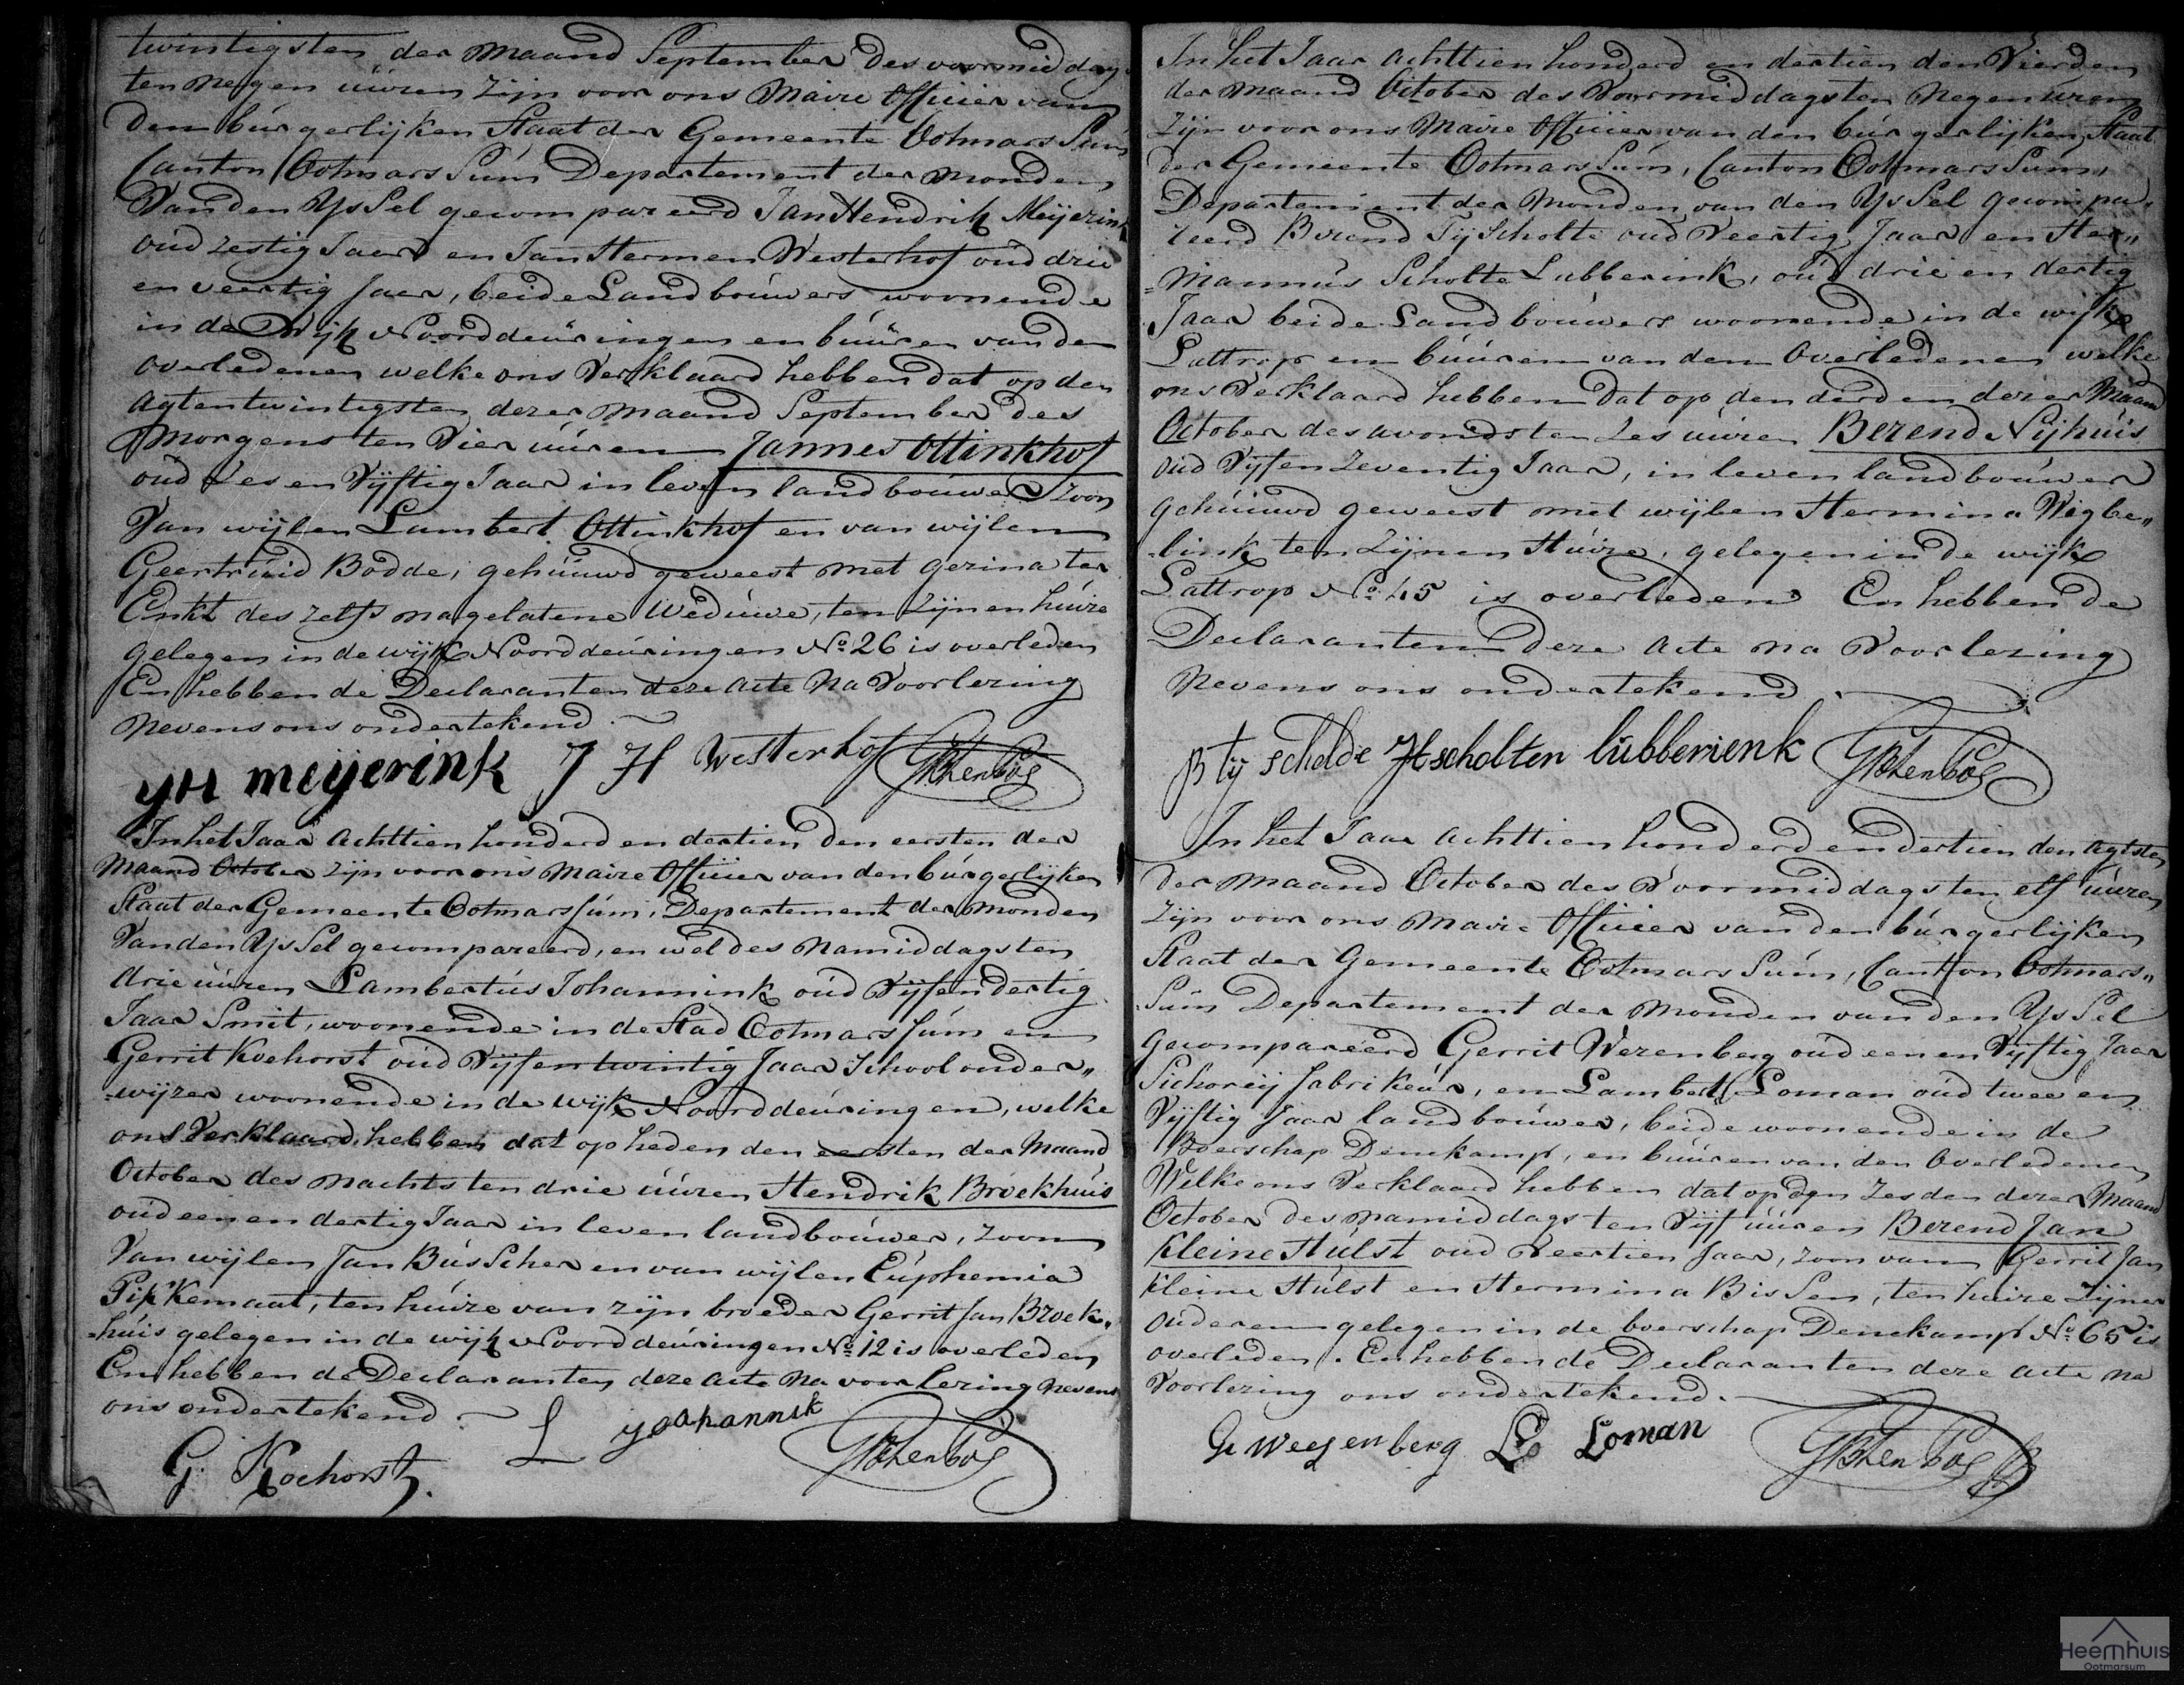 twintigsten der maand September des voormiddags
ten negen uuren zijn voor ons Maire Officier van
den burgerlijken Staat der Gemeente Ootmarssum
Canton Ootmarssum Departement der monden
Van den Yssel gecompareerd Jan Hendrik Meijerink
oud zestig Jaar en Jan Hermen Westerhof oud drie
en veertig Jaar, beide Landbouwers woonende
in de Wijk Noorddeuringen en buuren van den
overledenen welke ons Verklaard hebben dat op den
agtentwintigsten dezer maand September des
morgens ten Vier uuren Jannes Ottinkhof
oud Zes en Vijftig Jaar in leven landbouwer zoon
Van wijlen Lambert Ottinkhof en van wijlen
Geertruid Bodde, gehuuwd geweest met Gezina ter
Enkt des zelfs nagelatene Weduwe, ten zijnen huize
gelegen in de wijk Noorddeuringen No. 26 is overleden
En hebben de Declaranten deze acte na Voorlezing
nevens ons ondertekend.
YH meijerink J H Westerhof
In het Jaar achttien honderd en dertien den eersten der
Maand October zijn voor ons Maire Officier van den burgerlijken
Staat der Gemeente Ootmarssum, Departement der Monden
Van den Yssel gecompareerd, en wel des namiddags ten
drie uuren Lambertus Johannink oud Vijf en dertig
Jaar Smit, woonende in de Stad Ootmarssum en
Gerrit Koehorst oud Vijfentwintig Jaar Schoolonder„
-wijzer woonende in de wijk Noorddeuringen, welke
ons Verklaard hebben dat op heden den eersten der Maand
October des nachts ten drie uuren Hendrik Broekhuis
oud een en dertig Jaar in leven landbouwer, zoon
Van wijlen Jan Busscher en van wijlen Euphemia
Pikkemaat, ten huize van zijn broeder Gerrit Jan Broek„
-huis gelegen in de wijk Noorddeuringen No. 12 is overleden
En hebben de Declaranten deze acte na voorlezing nevens
ons ondertekend.
L johannik
G. Koehorst.
In het Jaar achttien honderd en dertien den Vierden
der maand October des Voormiddags ten Negen uren
zijn voor ons Maire Officier van den burgerlijken Staat
der Gemeente Ootmarssum, Canton Ootmarssum,
Departement der Monden van den Yssel gecompa„
reerd Berend Tijscholte oud Veertig Jaar en Her„
-mannus Scholte Lubberink, oud drie en dertig
Jaar beide Landbouwers woonende in de wijk
Lattrop en buuren van den Overledenen welke
ons Verklaard hebben dat op den derden dezer Maand
October des avonds ten zes uuren Berend Nijhuis
oud Vijf en Zeventig Jaar, in leven landbouwer
gehuuwd geweest met wijlen Hermina Wigbe„
-link ten zijnen Huize, gelegen in de wijk
Lattrop No. 45 is overleden En hebben de
Declaranten deze acte na Voorlezing
nevens ons ondertekend.
B tij scholde H scholten lubberienk
In het Jaar achttien honderd en dertien den agtsten
der maand October des Voormiddags ten elf uuren
zijn voor ons Maire Officier van den burgerlijken
Staat der Gemeente Ootmarssum, Canton Ootmars„
Sum Departement der Monden van den Yssel
gecompareerd Gerrit Wezenberg oud een en Vijftig Jaar
Sichoreij fabrikeur, en Lambert Loman oud twee en
Vijftig Jaar landbouwer, beide woonende in de
Boerschap Denekamp, en buuren van den Overledenen
Welke ons Verklaard hebben dat op den Zesden dezer Maand
October des namiddags ten Vijf uuren Berend Jan
Kleine Hulst oud Veertien Jaar, zoon van Gerrit Jan
kleine Hulst en Hermina Bissen, ten huize zijner
Ouderen gelegen in de boerschap Denekamp No. 65 is
overleden. En hebben de Declaranten deze acte na
Voorlezing ons ondertekend.
G Weesenberg L Loman
Heemhuis
Ootmarsum